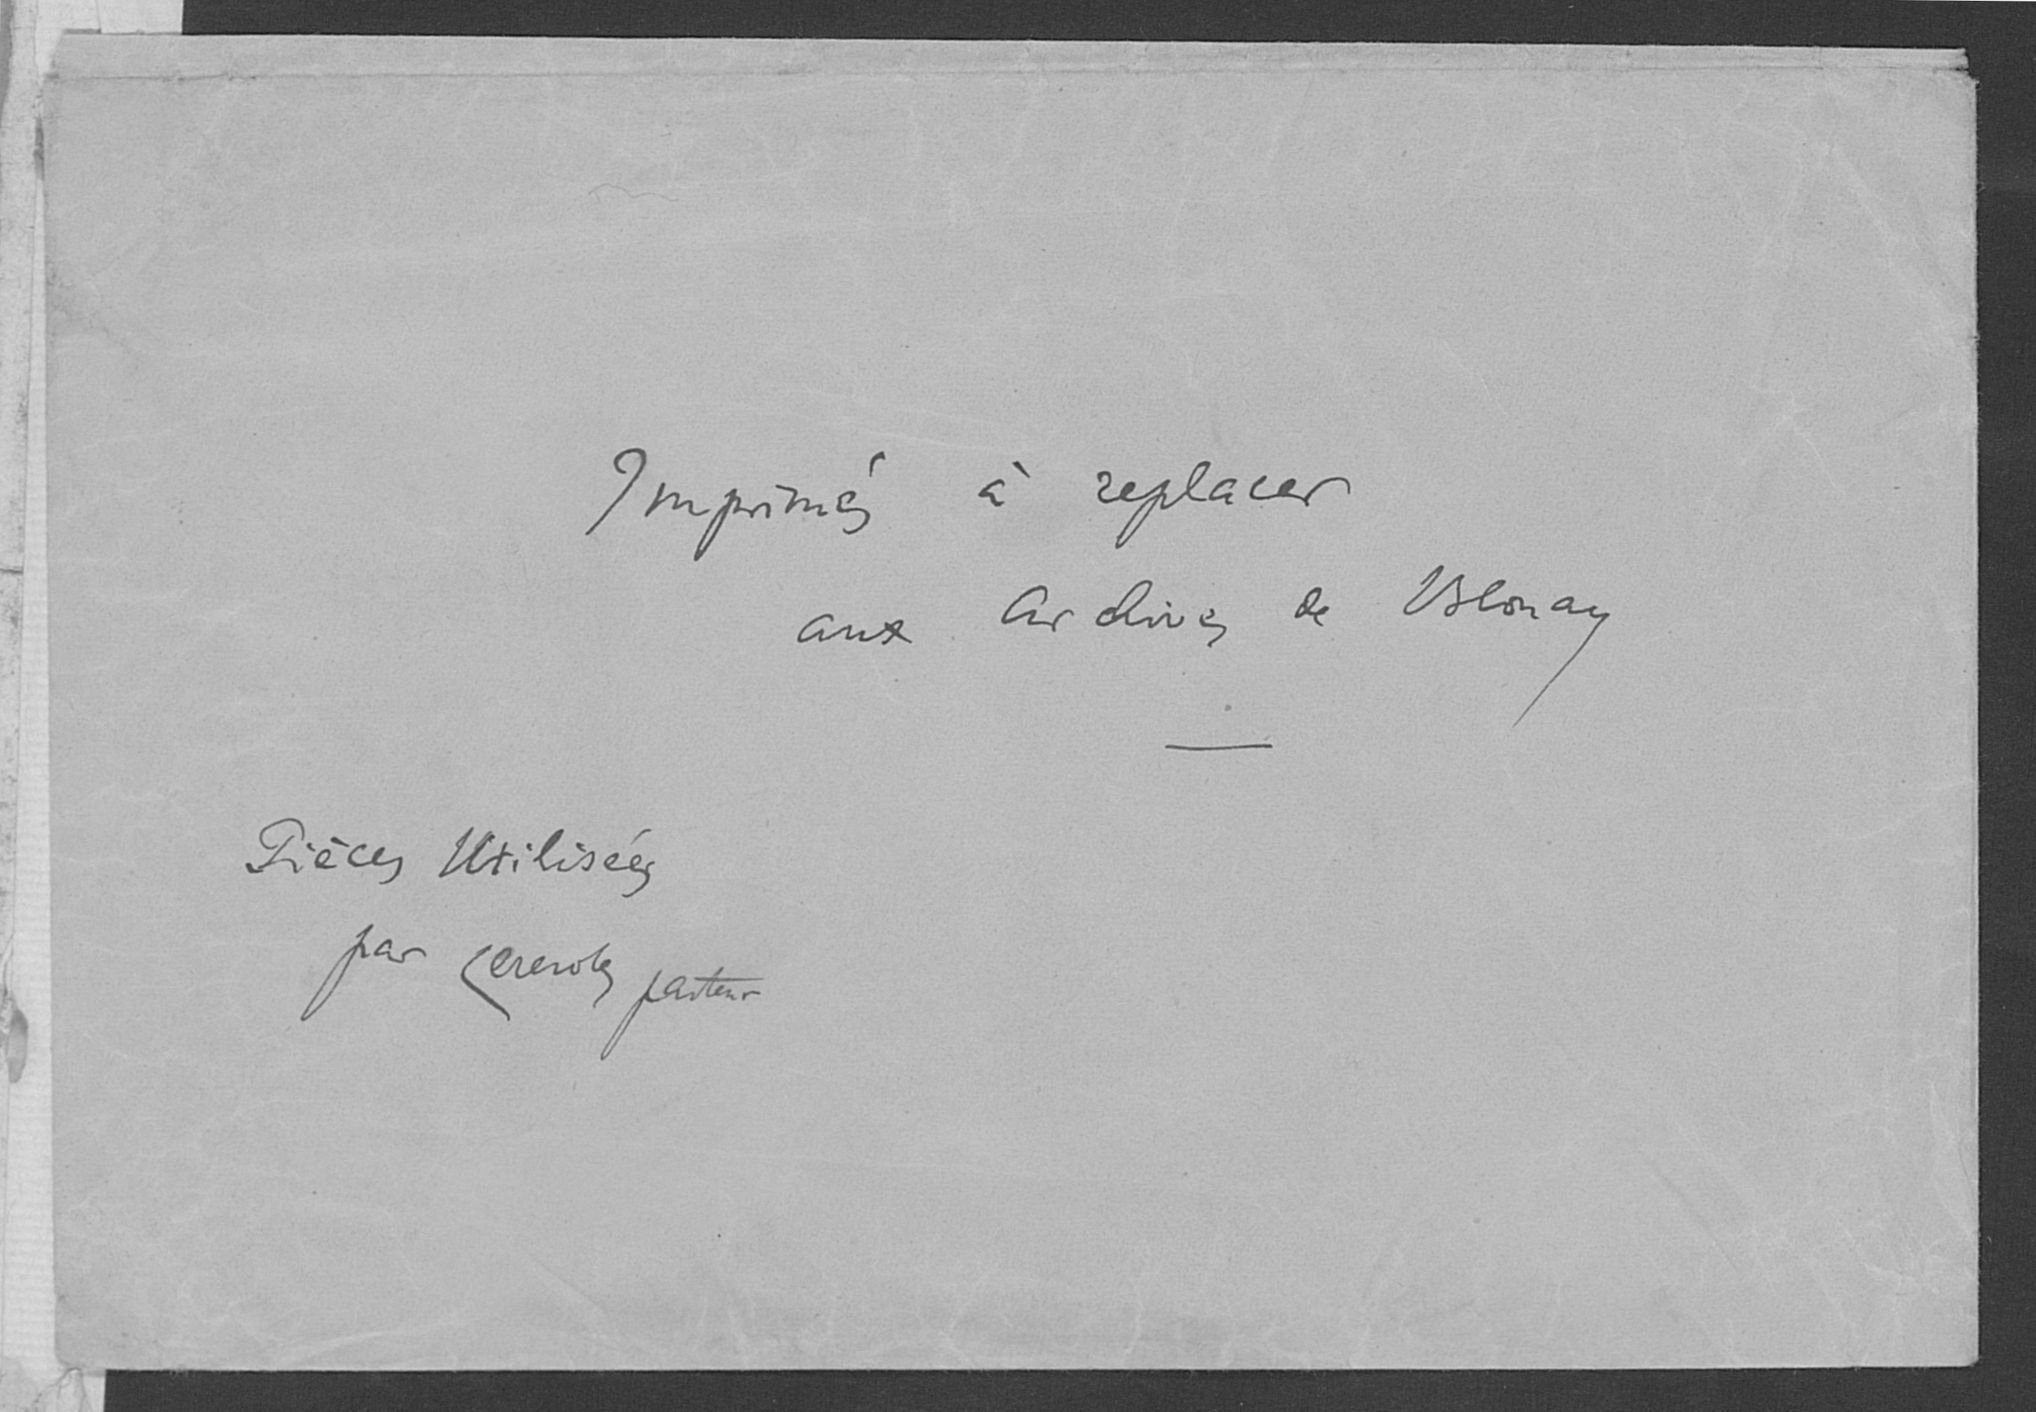 Imprimés à replacer
aux Archives de Blonay
Pièces Utilisées
par Ceresole pasteur